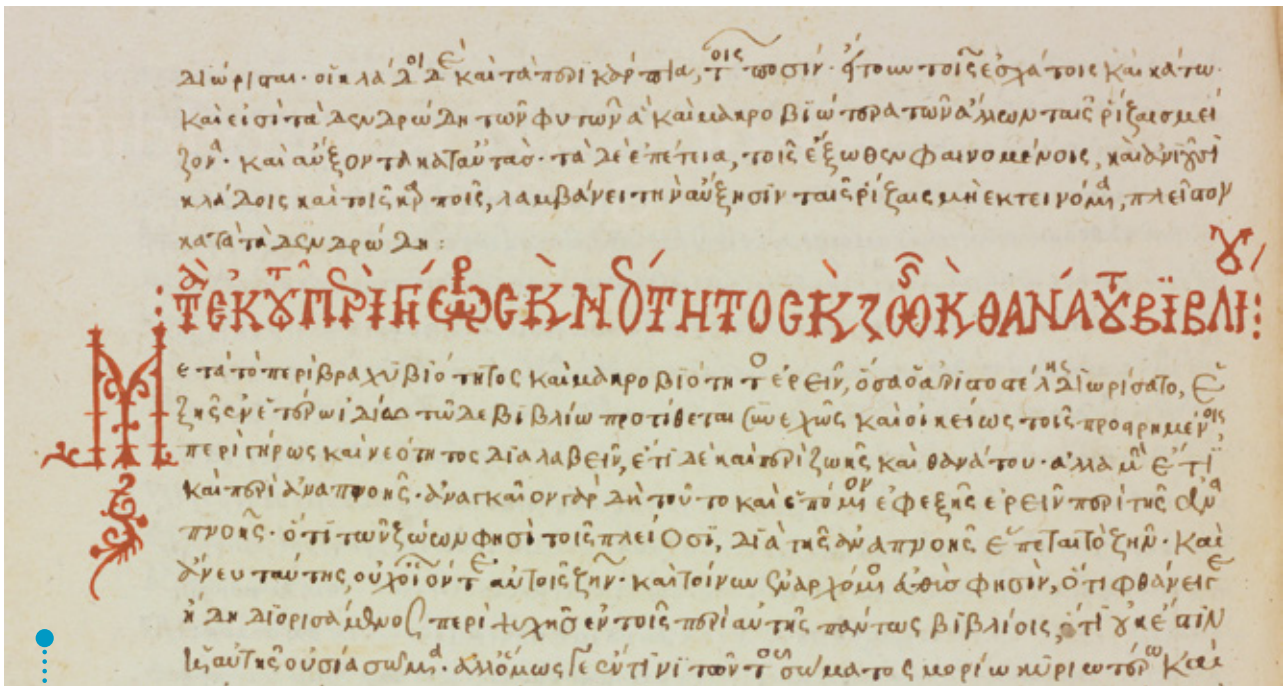 διώρισται. οἱ κλάδοι δὲ καὶ τὰ περικάρπια, τοῖς ποσίν. ἤτουν τοῖς ἐσχάτοις καὶ κάτω.
καὶ εἰσὶ τὰ δενδρώδη τῶν φυτῶν καὶ μακροβιώτερα τῶν ἄλλων ταῖς ῥίζαις μεί
ζονα. καὶ αὔξονται κατ αὐτάς. τὰ δὲ ἐπέτεια, τοῖς ἔξωθεν φαινομένοις, καὶ
κλάδοις καὶ τοῖς καρποῖς, λαμβάνει τὴν αὔξησιν ταῖς ῥίζαις μὴ ἐκτεινόμενα, πλεῖστον
κατὰ τὰ δενδρώδη:
περὶ γήρως κ νεότητος κ ζωῆς κ θανάτου βιβλίου
Μετὰ τὸ περὶ βραχυβιότητος καὶ μακροβιότητος ἐρεῖν, ὅσα ὁ ἀριστοτέλης διωρίσατο,
ἐν τῶδε βιβλίω προτίθεται συνεχῶς καὶ οἰκείως τοῖς προειρημένοις
περὶ γήρως καὶ νεότητος διαλαβεῖν, ἔτι δὲ καὶ περὶ ζωῆς καὶ θανάτου. ἀλλὰ μὴν ἔτι
καὶ περὶ ἀναπνοῆς. ἀναγκαῖον γὰρ δὴ τοῦτο καὶ ἑπόμενον ἐφεξῆς ἐρεῖν περὶ τῆς ἀνα
πνοῆς. ὅτι τῶν ζώων φησὶ τοῖς πλείοσι, διὰ τῆς ἀναπνοῆς ἕπεται τὸ ζῆν. καὶ
ἄνευ ταύτης, οὐχ οἷόν τε αὐτοῖς ζῆν. καὶ τοίνυν ἀρχόμενος φησὶν, ὅτι φθάνει
ἤδη διορισάμενος περὶ ψυχῆς ἐν τοῖς περὶ αὐτῆς πάντως βιβλίοις, ὅτι οὐκ ἔστιν
αὐτῆς οὐσία σῶμα. ἀλλ ὅμως γε ἔν τινι τῶν τοῦ σώματος μορίω κυριωτέρω καὶ